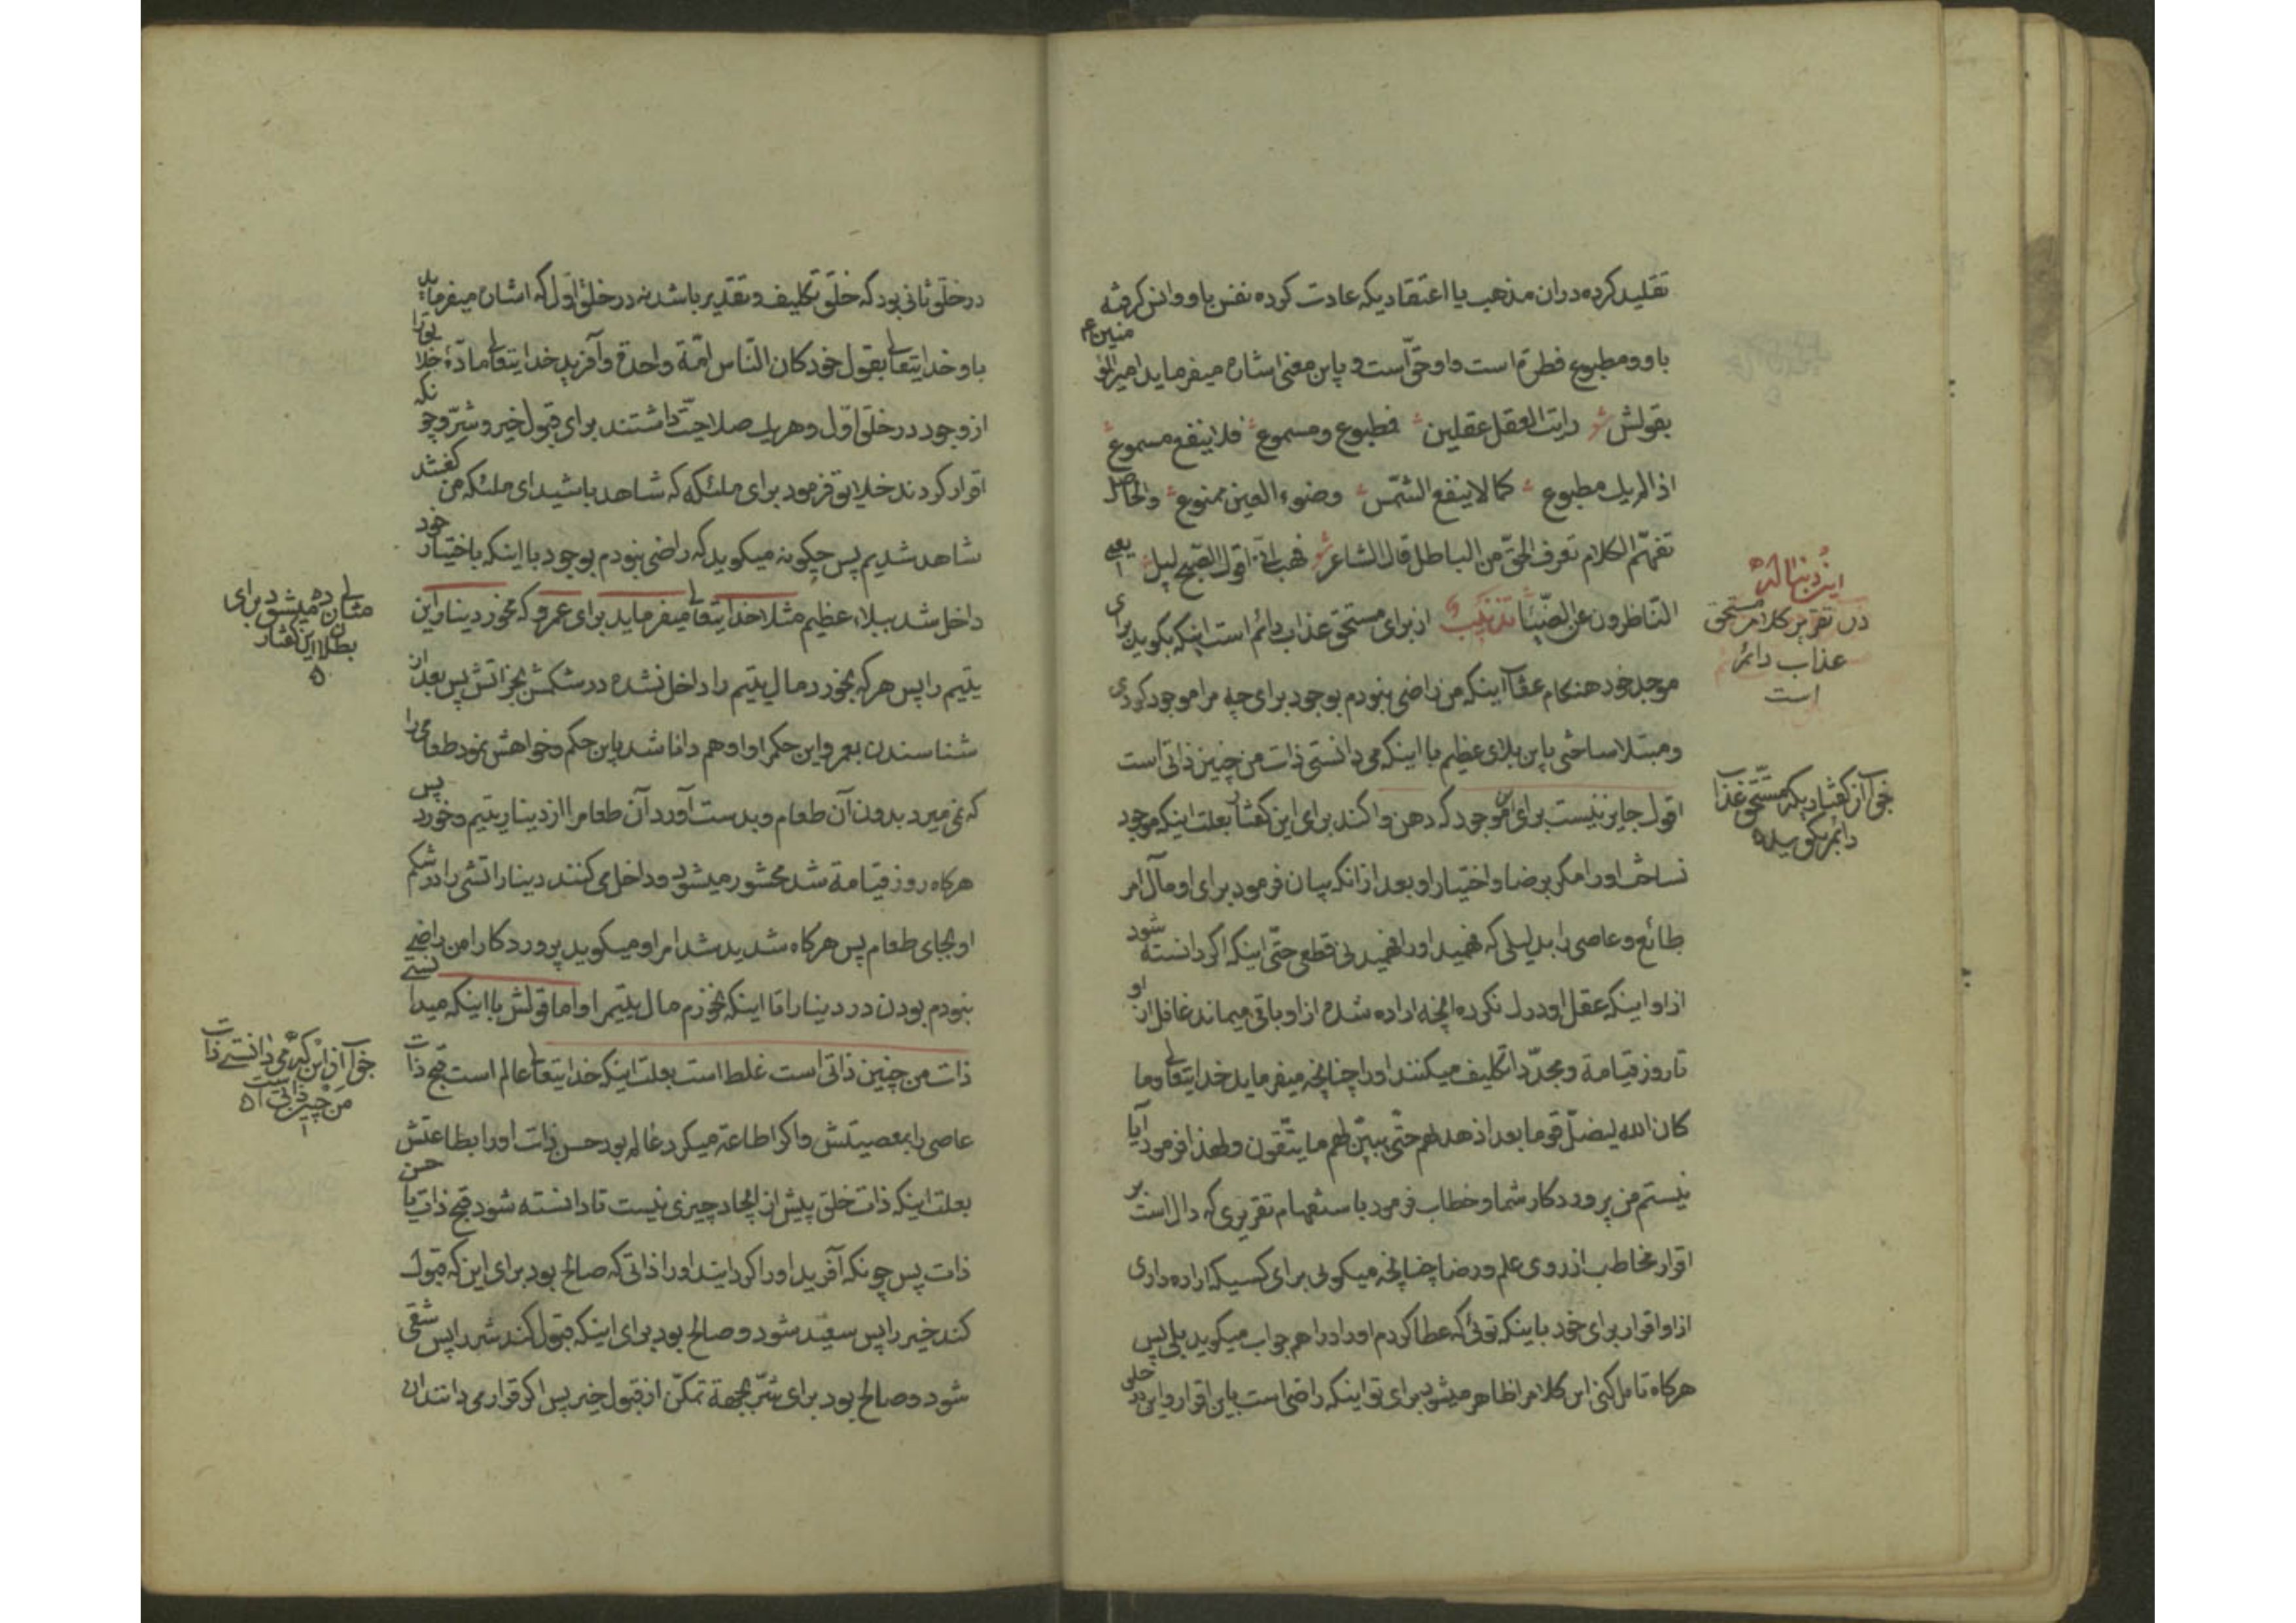 تقلید کرده در ان مذهب یا اعتقادیکه عادت کرده نفس باو وانس کرفته
باو و مطبوع فطرة است و او حق است و باین معنی اشاره میفرماید امیرالمؤمنین ع م
بقولش شعر رایت العقل عقلین فمطبوع و مسموع فلا ینفع مسموع
اذا لم یك مطبوع کما لا ینفع الشمس وضوء العین ممنوع والحاصل
تفهّم الکلام تعرف الحقّ من الباطل قال الشاعر شعر فهب انّی اقول الصّبح لیل ایعمی
النّاظرون عن الضّیاء تذنیب از برای مستحق عذاب دائم است اینکه بکوید برای
موجد خود هنکام عقاب اینکه من راضی نبودم بوجود برای چه مرا موجود کردی
و مبتلا ساختی باین بلای عظیم با اینکه می دانستی ذات من چنین ذاتی است
اقول جایز نیست برای این موجود که دهن واکند برای این کفتار بعلت اینکه موجود
نساخت او را مکر برضا و اختیار او بعد از انکه بیان فرمود برای او مآل امر
طائع و عاصی را بدلیلی که فهمید او را فهمیدنی قطعی حتّی اینکه اکر دانسته شود
از او اینکه عقل او درك نکرده انچه اراده شده از او باقی میماند غافل از او
تا روز قیامة و مجدّدا تکلیف میکنند او را چنانچه میفرماید خدایتعالی وما
کان الله لیضلّ قوما بعد اذ هدیهم حتّی یبیّن لهم ما یتّقون و لهذا فرمود آیا
نیستم من پروردکار شما و خطاب فرمود باستفهام تقریری که دال است بر
اقرار مخاطب از روی علم و رضا چنانچه میکوئی برای کسیکه اراده داری
از او اقرار برای خود باینکه توئی که عطا کردم او را دراهم جواب میکوید بلی پس
هرکاه تامل کنی این کلام را ظاهر میشود برای تو اینکه راضی است باین اقرار و این در خلق
این دنباله
در تقریر کلام مستحق
عذاب دائم
است
جواب از کفتاریکه مستحق عذاب
دائم بکوید
در خلق ثانی بود که خلق تکلیف و تقدیر باشد نه در خلق اول که اشاره میفرماید
باو خدایتعالی بقول خود کان النّاس امّة واحدة و آفرید خدایتعالی مادّهٔ خلایق را
از وجود در خلق اوّل و هریك صلاحیّت داشتند برای قبول خیر و شرّ و چونکه
اقرار کردند خلایق فرمود برای ملئکه که شاهد باشید ای ملئکه من کفتند
شاهد شدیم پس چکونه میکوید که راضی نبودم بوجود با اینکه باختیار خود
داخل شد ببلاء عظیم مثلا خدایتعالی میفرماید برای عمرو که مخور دینار این
یتیم را پس هرکه بخورد مال یتیم را داخل نشده در شکمش بجز اتش پس بعد از
شناسندن بعمرو این حکم را و او هم دانا شد باین حکم و خواهش نمود طعامی را
که نمی میرد بدون آن طعام و بدست آورد آن طعام را از دینار یتیم و خورد پس
هرکاه روز قیامة شد محشور میشود و داخل می کنند دینار اتشی را در شکم
او بجای طعام پس هرکاه شدید شد امر او میکوید پروردکارا من راضی
نبودم بودن در دینار را تا اینکه نخورم مال یتیم را و اما قولش با اینکه میدانستی
ذات من چنین ذاتی است غلط است بعلت اینکه خدایتعالی عالم است قبح ذات
عاصی را بمعصیتش و اکر اطاعة میکرد عالم بود حسن ذات او را بطاعتش
بعلت اینکه ذات خلق پیش از ایجاد چیزی نیست تا دانسته شود قبح ذات یا حسن
ذات پس چونکه آفرید او را کردانید او را ذاتی که صالح بود برای این که قبول
کند خیر را پس سعید شود و صالح بود برای اینکه قبول کند شر را پس شقی
شود و صالح بود برای شرّ بجهة تمکّن از قبول خیر پس اکر قرار می دانند ان
مثالی زده میشود برای
بطلان این کفتار
جواب از این که می دانستی ذات
من چنین ذاتی است